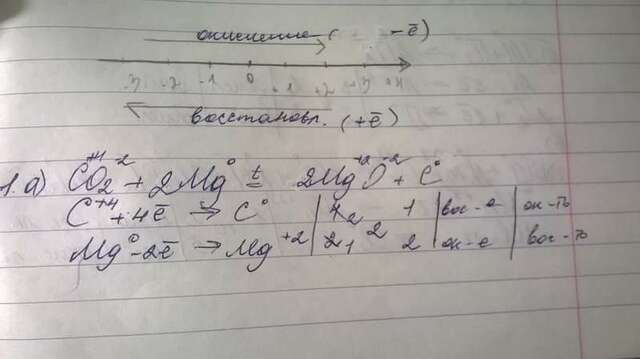 окисление (-ē)
-3 -2 -1 0 +1 +2 +3 +4
восстановл. (+ē)
1.а) C⁺⁴O₂⁻² + 2Mg⁰ t= 2Mg⁺²O⁻² + C⁰
C⁺⁴ + 4ē → C⁰ | 4 2 1 | вос-е | ок-ль
Mg⁰ - 2ē → Mg⁺² | 2 1 2 2 | ок-е | вос-ль